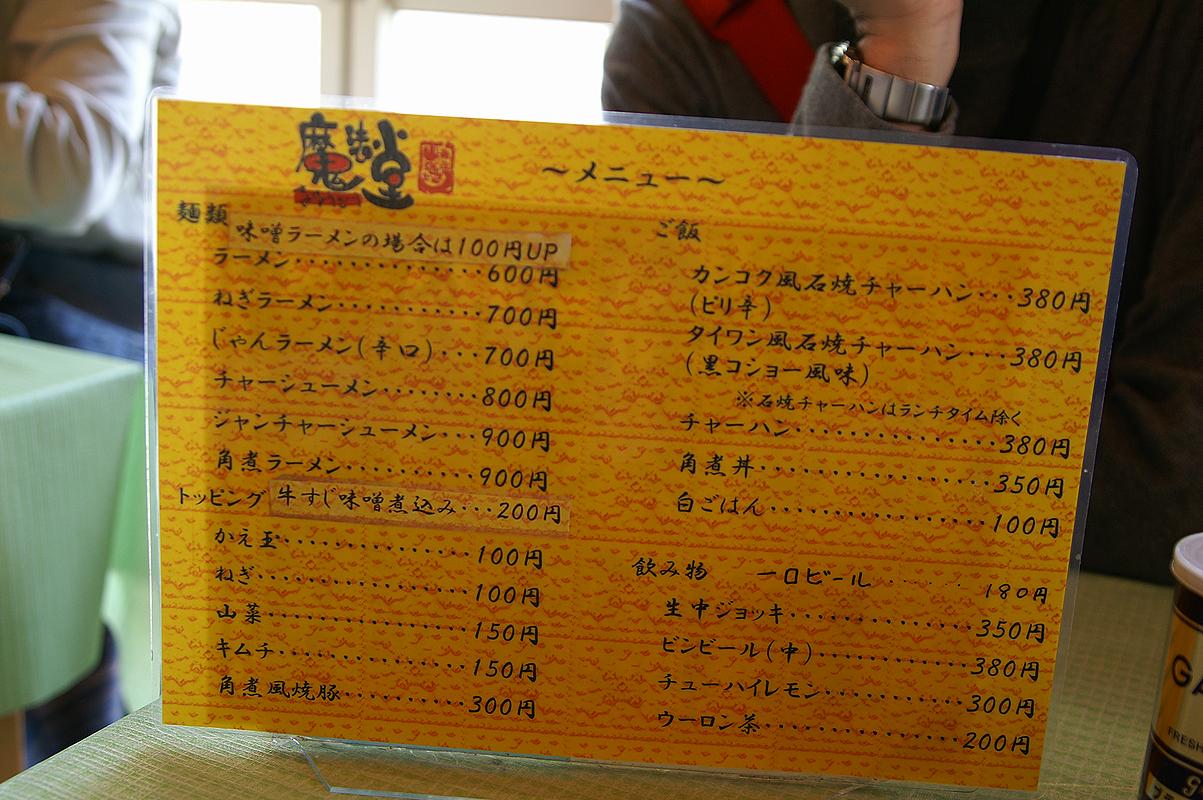 魔法堂
～メニュー～
麺類
味噌ラーメンの場合は100円UP
ラーメン・・・・・・・・・・・・・・・600円
ねぎラーメン・・・・・・・・・・・・700円
じゃんラーメン(辛口)・・・700円
チャーシューメン・・・・・・・・800円
ジャンチャーシューメン・・・900円
角煮ラーメン・・・・・・・・・・・900円
トッピング 牛すじ味噌煮込み・・・200円
かえ玉・・・・・・・・・・・・・・・・100円
ねぎ・・・・・・・・・・・・・・・・・・100円
山菜・・・・・・・・・・・・・・・・・・150円
キムチ・・・・・・・・・・・・・・・・150円
角煮風焼豚・・・・・・・・・・・300円
ご飯
カンコク風石焼チャーハン・・・380円
(ピリ辛)
タイワン風石焼チャーハン・・・380円
(黒コショー風味)
※石焼チャーハンはランチタイム除く
チャーハン・・・・・・・・・・・・・・・・380円
角煮丼・・・・・・・・・・・・・・・・・・350円
白ごはん・・・・・・・・・・・・・・・・・100円
飲み物 一口ビール・・・・・・・180円
生中ジョッキ・・・・・・・・・・・・・・350円
ビンビール(中)・・・・・・・・・・・・380円
チューハイレモン・・・・・・・・・・・300円
ウーロン茶・・・・・・・・・・・・・・・200円
GA
FRESH